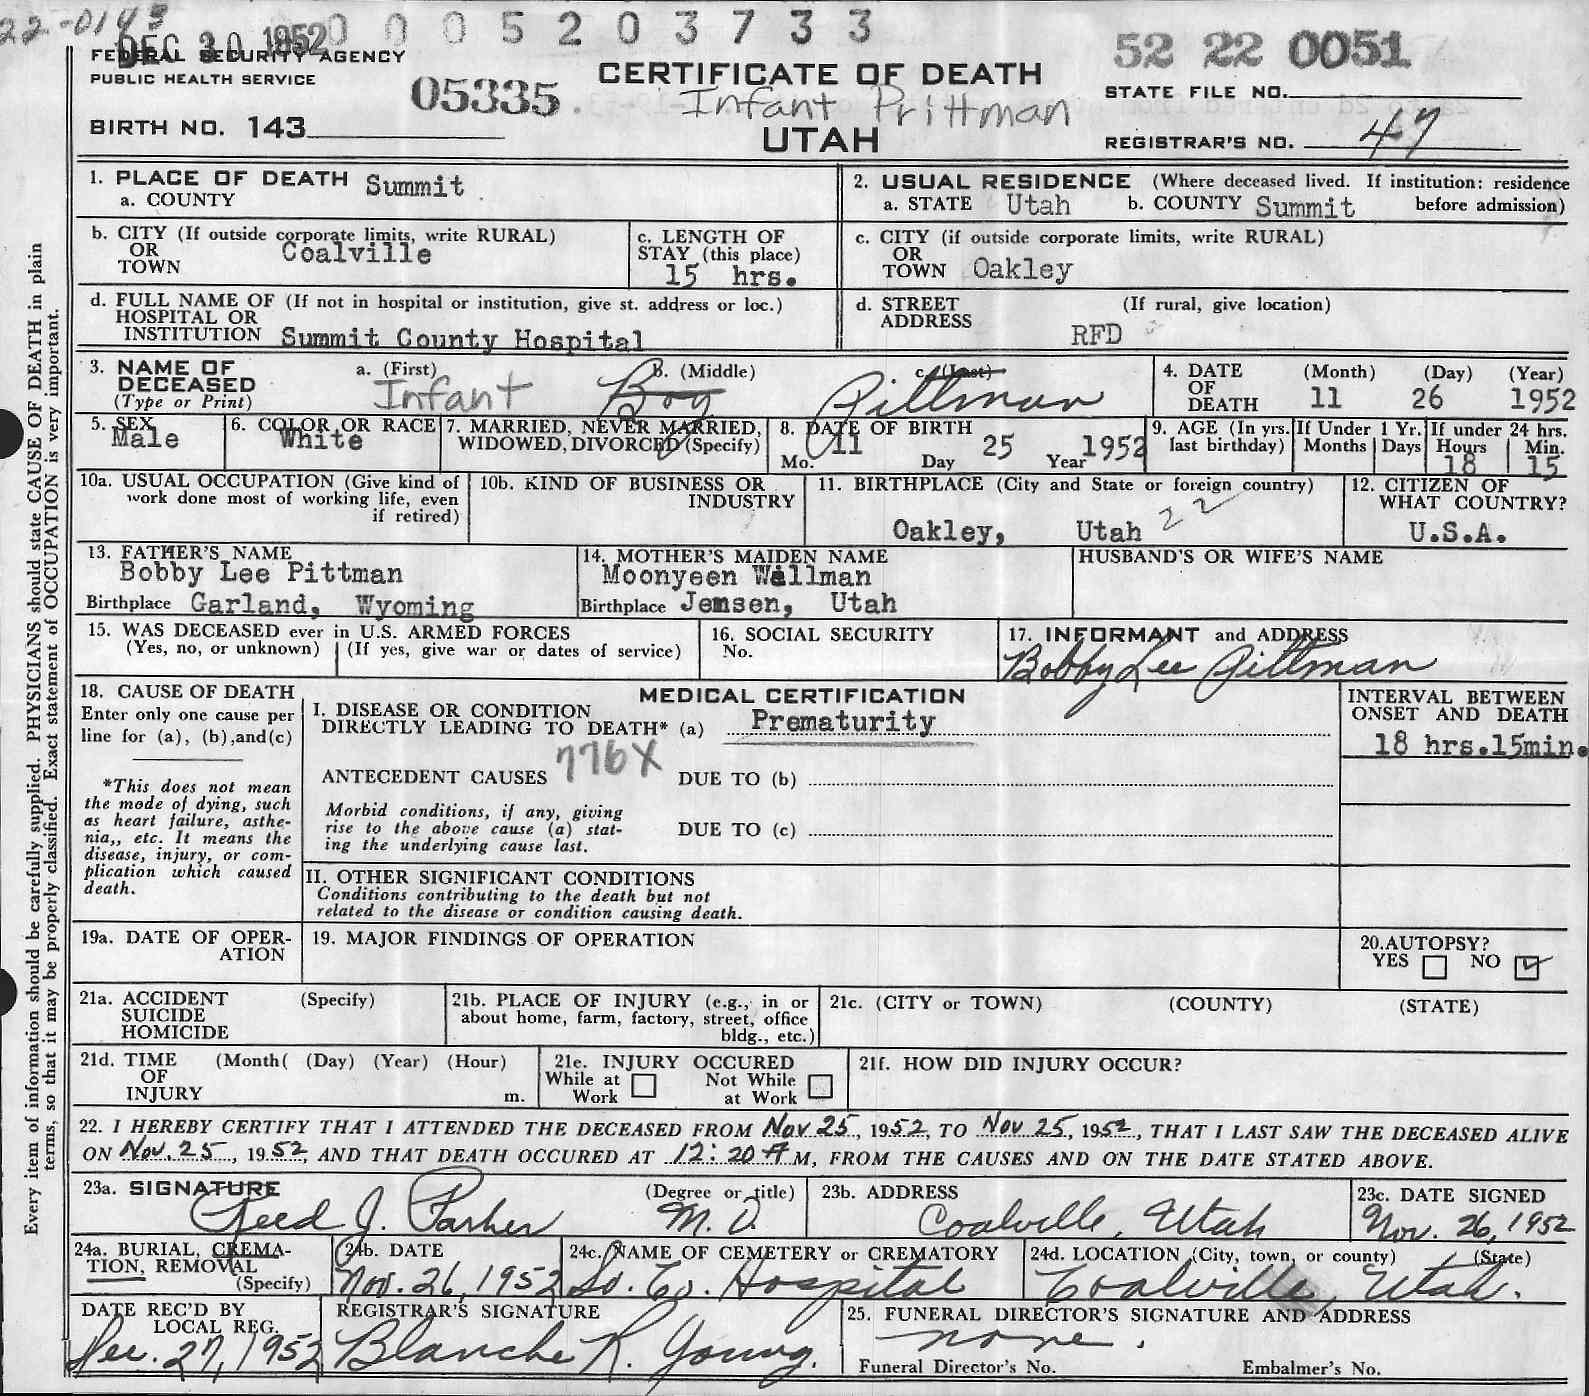 22-0143
DEC 30 1952 0 0 0 5 2 0 3 7 3 3
52 22 0051
FEDERAL SECURITY AGENCY
PUBLIC HEALTH SERVICE
05335
CERTIFICATE OF DEATH
Infant Prittman
UTAH
STATE FILE NO.
BIRTH NO. 143
REGISTRAR'S NO. 47
1. PLACE OF DEATH Summit
a. COUNTY
2. USUAL RESIDENCE (Where deceased lived. If institution: residence
a. STATE Utah b. COUNTY Summit before admission)
b. CITY (If outside corporate limits, write RURAL)
OR Coalville
TOWN
c. LENGTH OF
STAY (this place)
15 hrs.
c. CITY (if outside corporate limits, write RURAL)
OR
TOWN Oakley
d. FULL NAME OF (If not in hospital or institution, give st. address or loc.)
HOSPITAL OR
INSTITUTION Summit County Hospital
d. STREET (If rural, give location)
ADDRESS RFD
3. NAME OF a. (First) B. (Middle) c. (Last)
DECEASED Infant Boy Pittman
(Type or Print)
4. DATE (Month) (Day) (Year)
OF
DEATH 11 26 1952
5. SEX
Male
6. COLOR OR RACE
White
7. MARRIED, NEVER MARRIED,
WIDOWED, DIVORCED (Specify)
8. DATE OF BIRTH
Mo. 11 Day 25 Year 1952
9. AGE (In yrs.
last birthday)
If Under 1 Yr.
Months Days
If under 24 hrs.
Hours Min.
18 15
10a. USUAL OCCUPATION (Give kind of
work done most of working life, even
if retired)
10b. KIND OF BUSINESS OR
INDUSTRY
11. BIRTHPLACE (City and State or foreign country)
Oakley, Utah 22
12. CITIZEN OF
WHAT COUNTRY?
U.S.A.
13. FATHER'S NAME
Bobby Lee Pittman
Birthplace Garland, Wyoming
14. MOTHER'S MAIDEN NAME
Moonyeen Wallman
Birthplace Jensen, Utah
HUSBAND'S OR WIFE'S NAME
15. WAS DECEASED ever in U.S. ARMED FORCES
(Yes, no, or unknown) (If yes, give war or dates of service)
16. SOCIAL SECURITY
No.
17. INFORMANT and ADDRESS
Bobby Lee Pittman
18. CAUSE OF DEATH
Enter only one cause per
line for (a), (b),and(c)
*This does not mean
the mode of dying, such
as heart failure, asthe-
nia,, etc. It means the
disease, injury, or com-
plication which caused
death.
MEDICAL CERTIFICATION
I. DISEASE OR CONDITION
DIRECTLY LEADING TO DEATH* (a) Prematurity
776X
ANTECEDENT CAUSES DUE TO (b)
Morbid conditions, if any, giving
rise to the above cause (a) stat-
ing the underlying cause last.
DUE TO (c)
II. OTHER SIGNIFICANT CONDITIONS
Conditions contributing to the death but not
related to the disease or condition causing death.
INTERVAL BETWEEN
ONSET AND DEATH
18 hrs.15min.
19a. DATE OF OPER-
ATION
19. MAJOR FINDINGS OF OPERATION
20.AUTOPSY?
YES NO
21a. ACCIDENT (Specify)
SUICIDE
HOMICIDE
21b. PLACE OF INJURY (e.g., in or
about home, farm, factory, street, office
bldg., etc.)
21c. (CITY or TOWN) (COUNTY) (STATE)
21d. TIME (Month( (Day) (Year) (Hour)
OF
INJURY m.
21e. INJURY OCCURED
While at Not While
Work at Work
21f. HOW DID INJURY OCCUR?
22. I HEREBY CERTIFY THAT I ATTENDED THE DECEASED FROM Nov 25, 1952, TO Nov 25, 1952, THAT I LAST SAW THE DECEASED ALIVE
ON Nov. 25, 1952, AND THAT DEATH OCCURED AT 12:20 A M, FROM THE CAUSES AND ON THE DATE STATED ABOVE.
23a. SIGNATURE (Degree or title)
Reed J. Parker M.D.
23b. ADDRESS
Coalville, Utah
23c. DATE SIGNED
Nov. 26, 1952
24a. BURIAL, CREMA-
TION, REMOVAL
(Specify)
24b. DATE
Nov. 26, 1952
24c. NAME OF CEMETERY or CREMATORY
So. Co. Hospital
24d. LOCATION (City, town, or county) (State)
Coalville, Utah.
DATE REC'D BY
LOCAL REG.
Dec. 27, 1952
REGISTRAR'S SIGNATURE
Blanche R. Young.
25. FUNERAL DIRECTOR'S SIGNATURE AND ADDRESS
none.
Funeral Director's No. Embalmer's No.
Every item of information should be carefully supplied. PHYSICIANS should state CAUSE OF DEATH in plain
terms, so that it may be properly classified. Exact statement of OCCUPATION is very important.